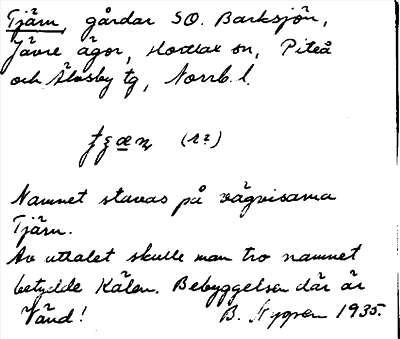 Tjärn, gårdar SO. Barksjön,
Jävre ägor, Hortlax sn, Piteå
och Älvsby tg, Norrb. l.
(r?)
Namnet stavas på vägvisarna
Tjärn.
Av uttalet skulle man tro namnet
betydde Kälen. Bebyggelsen där är
Vänd!
B. Nygren 1935.